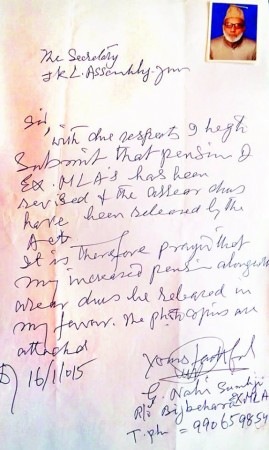 The Secretary
J&K L. Assembly Jmu
Sir,
with due respects I
Submit that pension of
EX. MLA's has been
revised & the arrear dues
have been released by the
Actt.
It is therefore prayed that
my increased pension alongwith
arear dues be released in
my favour. The photo copies are
attached
16/1/015
Yours faithful
G. Nabi
R/o Bijbehara EX MLA
T. ph = 990659854